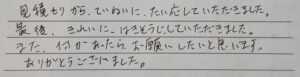 見積もりから、ていねいに、たい応していただきました。
最後、きれいに、はきそうじしていただきました。
また、何かあったら、お願いしたいと思います。
ありがとうございました。